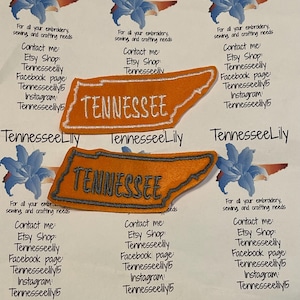 For all your embroidery,
sewing, and crafting needs
Contact me:
Etsy Shop:
Tennesseelily
Facebook page:
Tennesseelily15
Instagram:
Tennesseelily15
For all your embroidery,
sewing, and crafting needs
Contact me:
Etsy Shop:
Tennesseelily
For all your embroidery,
sewing, and crafting needs
Contact me:
Etsy Shop:
Tennesseelily
Facebook page:
Tennesseelily15
Instagram:
Tennesseelily15
TENNESSEE
TennesseeLily
TennesseeLily
TennesseeLily
TENNESSEE
For all your
sewing, and
Contact me:
Etsy Shop:
Tennesseelily
Facebook page:
Tennesseelily15
Instagram:
Tennesseelily15
needs
Contact me:
Etsy Shop:
Tennesseelily
Facebook page:
Tennesseelily15
Instagram:
Tennesseelily15
For all your embroidery,
sewing, and crafting needs
Contact me:
Etsy Shop:
Tennesseelily
Facebook page:
Tennesseelily15
Instagram:
Tennesseelily15